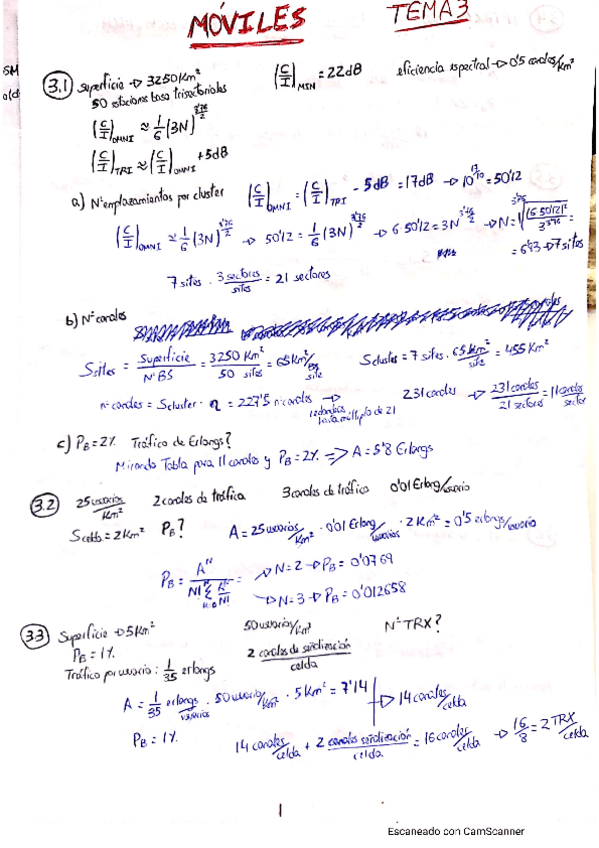 MÓVILES TEMA 3
SM
3.1 Superficie → 3250 Km² (C/I)MIN = 22 dB eficiencia espectral → 0'5 canales/Km²
50 estaciones base trisectoriales
(C/I)OMNI ≈ 1/6 (3N)^(3'76/2)
(C/I)TRI ≈ (C/I)OMNI + 5 dB
a) Nº emplazamientos por cluster (C/I)OMNI = (C/I)TRI - 5 dB = 17 dB → 10^(17/10) = 50'12
(C/I)OMNI ≈ 1/6 (3N)^(3'76/2) → 50'12 = 1/6 (3N)^(3'76/2) → 6·50'12 = 3N^(3'76/2) → N = ^(3'76)√((6·50'12)²/3^3'76) =
= 6'93 → 7 sites
7 sites · 3 sectores/sites = 21 sectores
b) Nº canales
Ssites = Superficie/Nº BS = 3250 Km²/50 sites = 65 Km²/site Scluster = 7 sites · 65 Km²/site = 455 Km²
nº canales = Scluster · η = 227'5 nº canales → 231 canales → 231 canales/21 sectores = 11 canales/sector
redondeo hasta múltiplo de 21
c) PB = 2% Tráfico de Erlangs?
Mirando Tabla para 11 canales y PB = 2% ⇒ A = 5'8 Erlangs
3.2 25 usuarios/Km² 2 canales de tráfico 3 canales de tráfico 0'01 Erlang/usuario
Scelda = 2 Km² PB? A = 25 usuarios/Km² · 0'01 Erlang/usuarios · 2 Km² = 0'5 erlangs/usuario
PB = A^N / N! Σ A^n/N! = → N = 2 → PB = 0'0769
→ N = 3 → PB = 0'012658
3.3 Superficie → 5 Km² 50 usuarios/Km² Nº TRX?
PB = 1% 2 canales de señalización/celda
Tráfico por usuario: 1/35 erlangs
A = 1/35 erlangs/usuarios · 50 usuarios/Km² · 5 Km² = 7'14 → 14 canales/celda
PB = 1% 14 canales/celda + 2 canales señalización/celda = 16 canales/celda → 16/8 = 2 TRX/celda
1
Escaneado con CamScanner